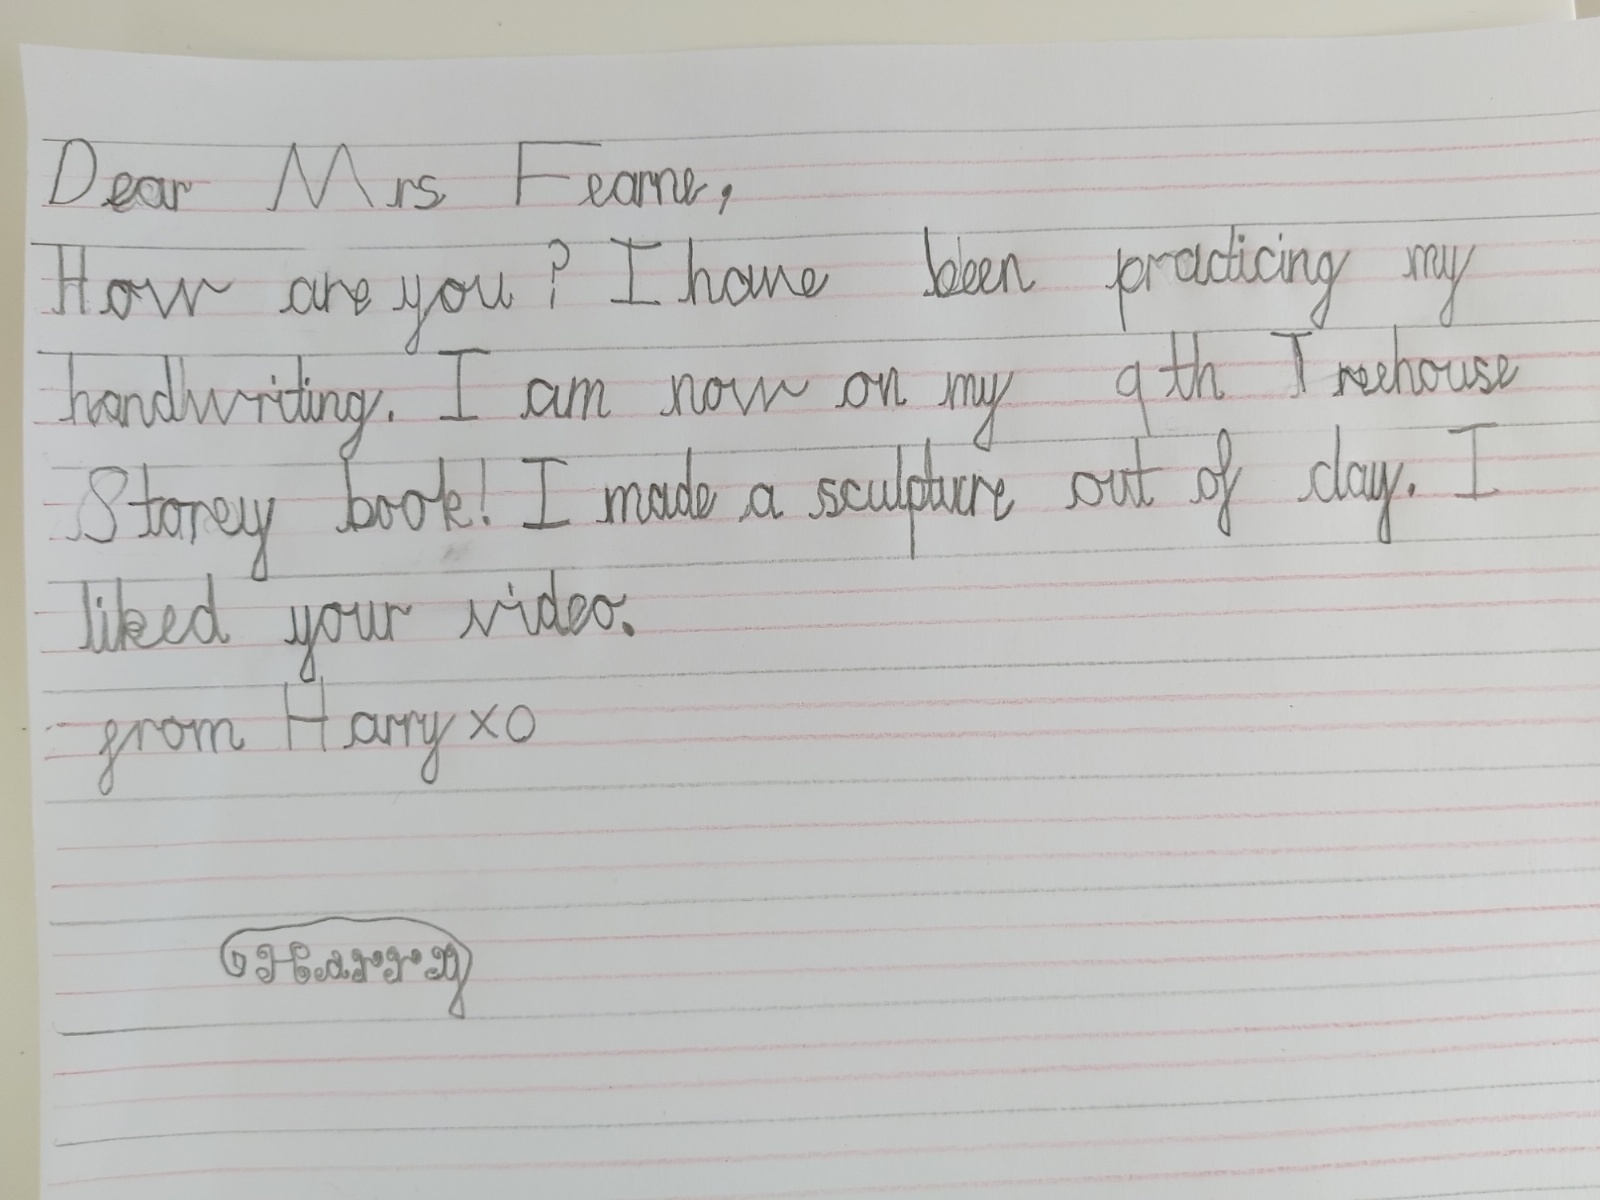 Dear Mrs Fearne,
How are you? I have been practicing my
handwriting. I am now on my 9th Treehouse
Storey book! I made a sculpture out of clay. I
liked your video.
from Harry xo
Harry